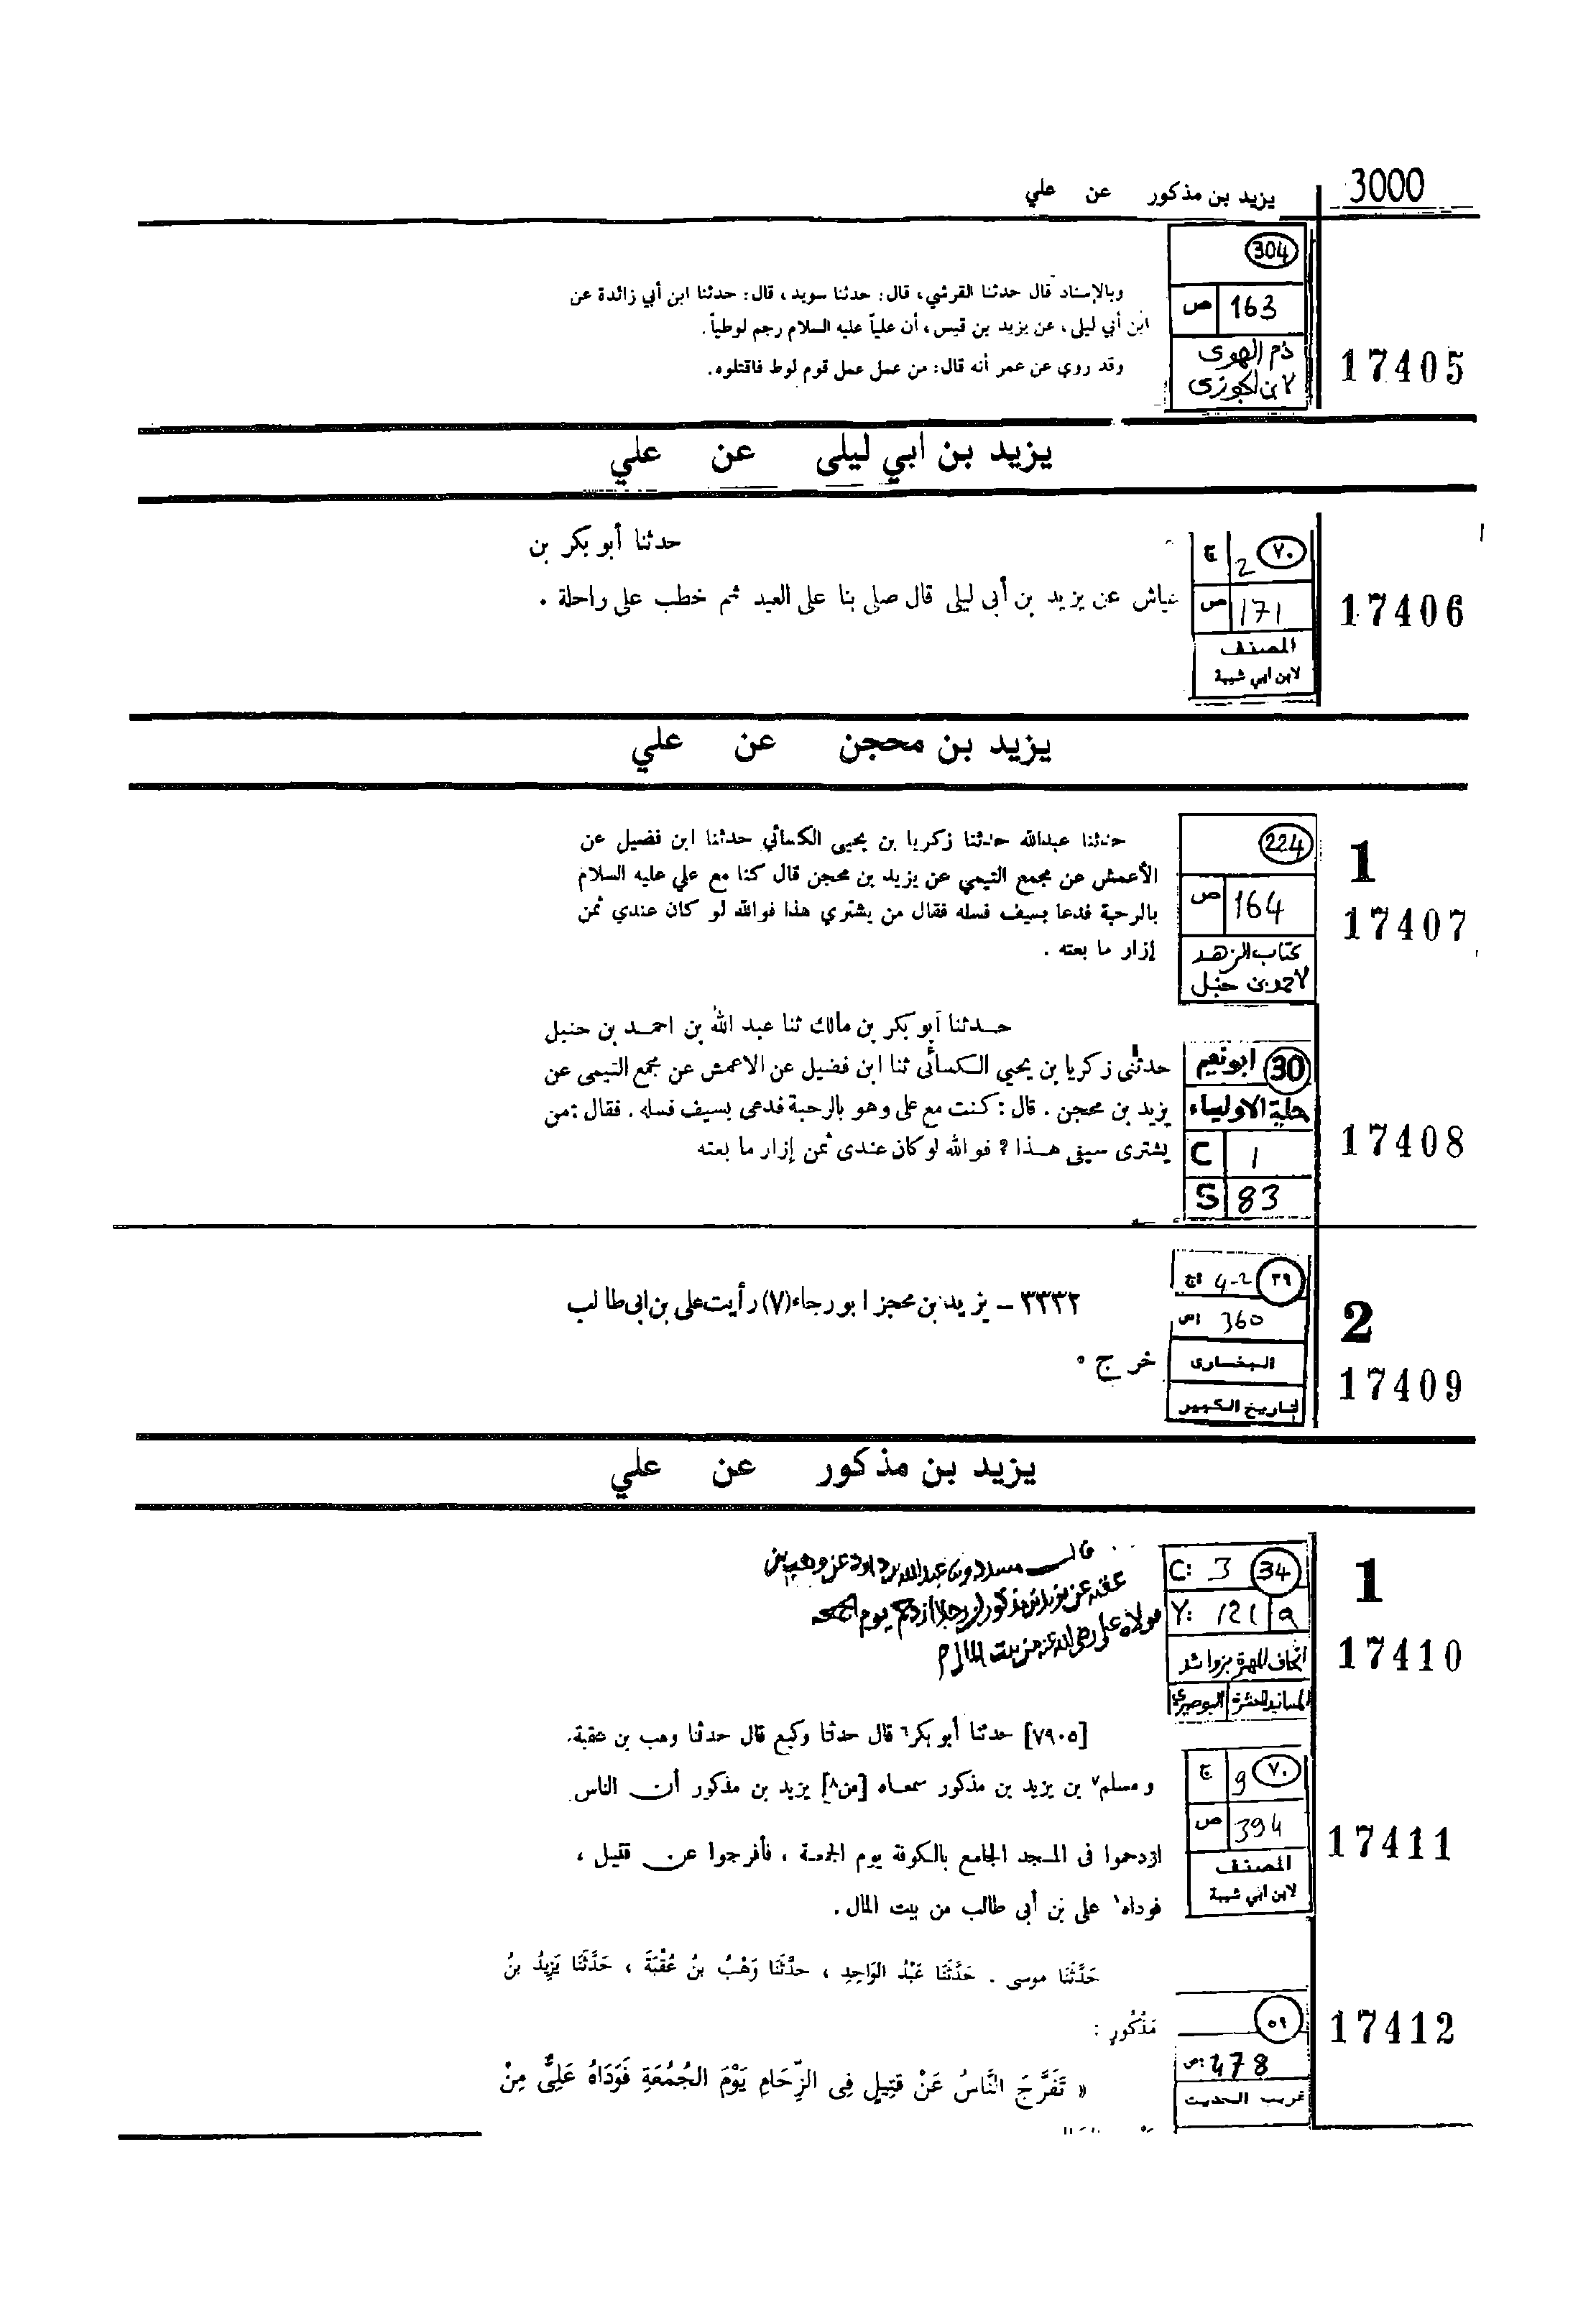 3000
يزيد بن مذكور عن علي
304
163 ص
ذم الهوى
لابن الجوزى
17405
وبالإسناد قال حدثنا القرشي، قال: حدثنا سويد، قال: حدثنا ابن أبي زائدة عن
ابن أبي ليلى، عن يزيد بن قيس، أن علياً عليه السلام رجم لوطياً.
وقد روي عن عمر أنه قال: من عمل عمل قوم لوط فاقتلوه.
يزيد بن ابي ليلى عن علي
٧٠ 2 ج
171 ص
المصنف
لابن ابي شيبة
17406
حدثنا أبو بكر بن
عياش عن يزيد بن أبى ليلى قال صلى بنا على العيد ثم خطب على راحلة .
يزيد بن محجن عن علي
224
164 ص
كتاب الزهد
لاحمد بن حنبل
1
17407
حدثنا عبدالله حدثنا زكريا بن يحيى الكسائي حدثنا ابن فضيل عن
الأعمش عن مجمع التيمي عن يزيد بن محجن قال كنا مع علي عليه السلام
بالرحبة فدعا بسيف فسله فقال من يشتري هذا فوالله لو كان عندي ثمن
إزار ما بعته .
30 ابو نعيم
حلية الاولياء
C 1
S 83
17408
حـدثنا أبو بكر بن مالك ثنا عبد الله بن احمـد بن حنبل
حدثنى زكريا بن يحيي الـكسائى ثنا ابن فضيل عن الاعمش عن مجمع التيمى عن
يزيد بن محجن . قال : كنت مع على وهو بالرحبة فدعى بسيف فسله . فقال : من
يشترى سيفى هـذا ؟ فو الله لو كان عندى ثمن إزار ما بعته
٣٩ 4-2 ج
360 ص
البخارى
التاريخ الكبير
2
17409
٣٣٣٢ – يزيد بن محجز ابورجاء (٧) رأيت على بن ابى طالب
خرج ٠
يزيد بن مذكور عن علي
34 C: 3
Y: 121 a
اتحاف المهرة بزوائد
المسانيد العشرة البوصيري
1
17410
قال مسدد وبن عبدالله بن داود عن وهب بن
عقبه عن يزيد بن مذكور ان رجلا ازدحم يوم الجمعه
فوداه على رضى الله عنه من بيت المال
٧٠ 9 ج
394 ص
المصنف
لابن ابي شيبة
17411
[٧٩٠٥] حدثنا أبو بكر٦ قال حدثنا وكيع قال حدثنا وهب بن عقبة
و مسلم٧ بن يزيد بن مذكور سمعاه [من٨] يزيد بن مذكور أن الناس
ازدحموا فى المسجد الجامع بالكوفة يوم الجمعة ، فأفرجوا عن قتيل ،
فوداه١ على بن أبى طالب من بيت المال .
٥٩
478 ص
غريب الحديث
17412
حَدَّثَنَا موسى . حَدَّثَنَا عَبْدُ الوَاحِدِ ، حدَّثَنَا وَهْبُ بنُ عُقْبَةَ ، حَدَّثَنَا يَزِيدُ بنُ
مَذْكُورٍ :
« تَفَرَّجَ النَّاسُ عَنْ قَتِيلٍ فِى الزِّحَامِ يَوْمَ الجُمُعَةِ فَوَدَاهُ عَلِىٌّ مِنْ